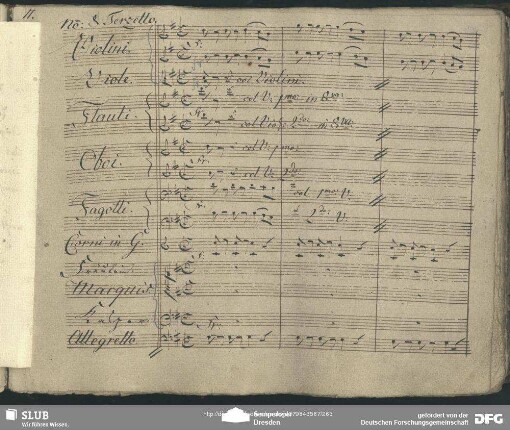 11.
No: 8. Terzetto.
Violini.
Viole.
col Violini.
Flauti.
col V: pmo in 8va
col Vino 2do in 8va
Oboi.
col V: pmo
col V: 2do
Fagotti.
col pmo V.
2do V.
Corni in G.
Fräulein
Marquis
Kasper
Allegretto
SLUB
Wir führen Wissen.
Dresden
gefördert von der
Deutschen Forschungsgemeinschaft
DFG